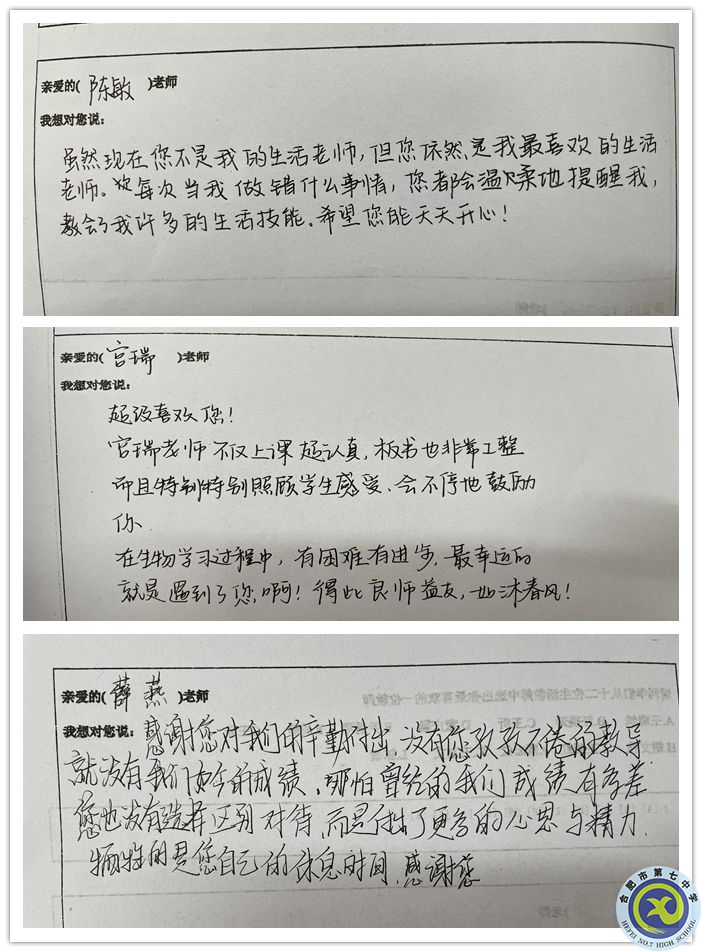 亲爱的( 陈敏 )老师
我想对您说:
虽然现在您不是我的生活老师,但您依然是我最喜欢的生活
老师。每次当我做错什么事情,您都会温柔地提醒我,
教会了我许多的生活技能。希望您能天天开心!
亲爱的( 宫瑞 )老师
我想对您说:
超级喜欢您!
宫瑞老师不仅上课超认真,板书也非常工整
而且特别特别照顾学生感受、会不停地鼓励
你.
在生物学习过程中,有困难有进步,最幸运的
就是遇到了您啊!得此良师益友,如沐春风!
亲爱的( 薛燕 )老师
我想对您说:感谢您对我们的辛勤付出,没有您孜孜不倦的教导
就没有我们如今的成绩,哪怕曾经的我们成绩有多差
您也没有选择区别对待,而是付出了更多的心思与精力.
牺牲的是您自己的休息时间,感谢您
合肥市第七中学
HEFEI NO.7 HIGH SCHOOL